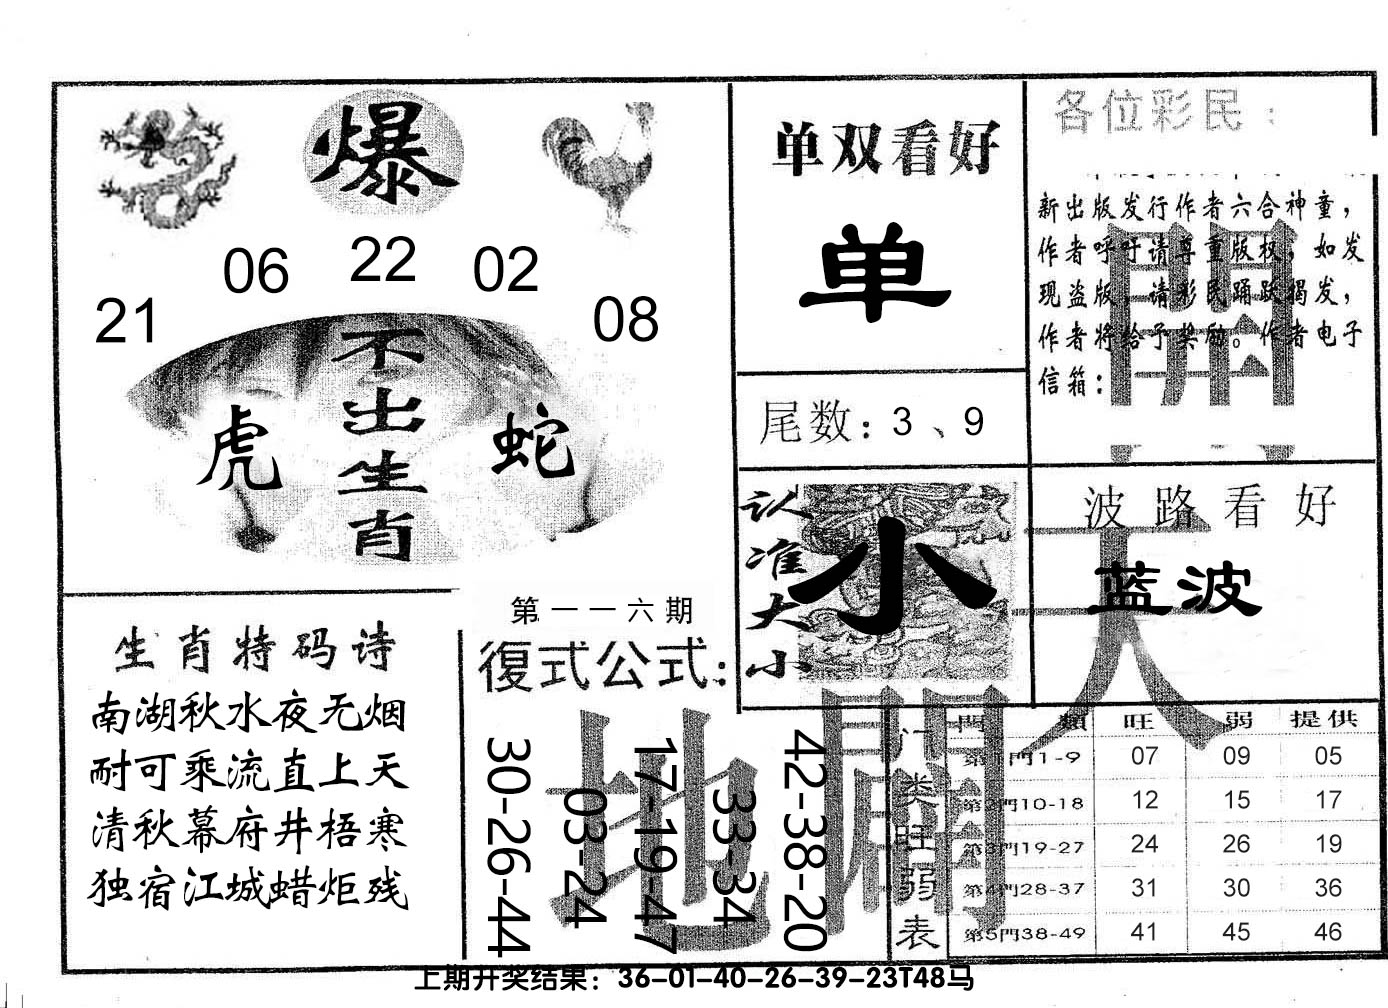 爆
21 06 22 02 08
不出生肖
虎 蛇
单双看好
单
尾数：3、9
认准大小
小
各位彩民：
新出版发行作者六合神童，
作者呼吁请尊重版权，如发
现盗版，请彩民踊跃揭发，
作者将给予奖励。作者电子
信箱：
波路看好
蓝波
天
生肖特码诗
南湖秋水夜无烟
耐可乘流直上天
清秋幕府井梧寒
独宿江城蜡炬残
第一一六期
復式公式：
30-26-44
03-24
17-19-47
33-34
42-38-20
地
開
门类旺弱表
門類 旺 弱 提供
第1門1-9 07 09 05
第2門10-18 12 15 17
第3門19-27 24 26 19
第4門28-37 31 30 36
第5門38-49 41 45 46
上期开奖结果：36-01-40-26-39-23T48马